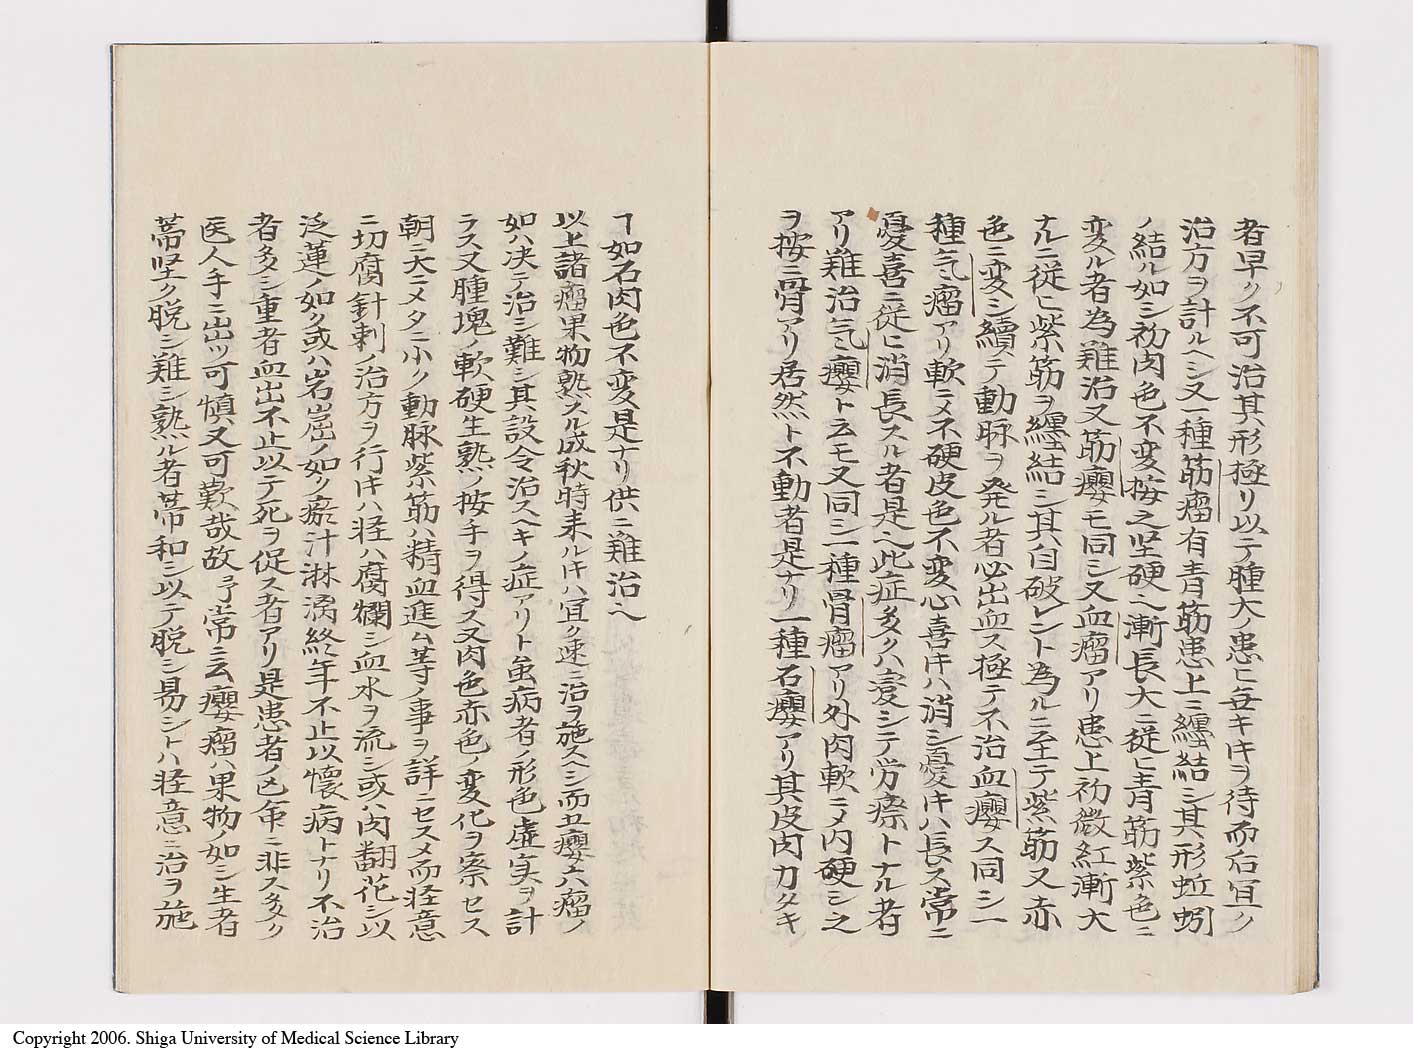 者早ク不可治其形極リ以テ腫大ノ患ヒ毎キヰヲ待而后宜ク
治方ヲ計ルヘシ又一種筋瘤有青筋患上ニ纏結シ其形蚯蚓
ノ結ル如シ初肉色不変按之坚硬ヘ漸長大ニ従ヒ青筋紫色ニ
変ル者為難治又筋癭モ同シ又血瘤アリ患上初微紅漸大
ナルニ従ヒ紫筋ヲ纏結シ其自破レント為ルニ至テ紫筋又赤
色ニ変シ續テ動脉ヲ発ル者必出血ス極テ不治血癭ス同シ一
種气瘤アリ軟ニメ不硬皮色不変心喜キハ消シ憂キハ長ス常ニ
憂喜ニ従ヒ消長スル者是ヘ此症多クハ変シテ労瘵トナル者
アリ難治气癭ト云モ又同シ一種骨瘤アリ外肉軟ニメ内硬シ之
ヲ按ニ骨アリ居然ト不動者是ナリ一種石癭アリ其皮肉カタキ
ヿ如石肉色不変是ナリ供ニ難治ヘ
以上諸瘤果物熟スル成秋時来ルキハ宜ク速ニ治ヲ施スヘシ而五癭六瘤ノ
如ハ决テ治シ難シ其設令治スヘキノ症アリト虽病者ノ形色虚実ヲ計
ラス又腫塊ノ軟硬生熟ノ按手ヲ得ス又肉色赤色ノ変化ヲ察セス
朝ニ大ニメタニ小ク動脉紫筋ハ精血進ム等ノ事ヲ詳ニセスメ而怪意
ニ切腐針刺ノ治方ヲ行キハ怪ハ腐爛シ血水ヲ流シ或ハ肉翻花シ以
泛蓮ノ如ク或ハ岩崫ノ如ク瘀汁淋漓終年不止以懐病トナリ不治
者多シ重者血出不止以テ死ヲ促ス者アリ是患者ノ亡命ニ非ス多ク
医人手ニ出ツ可慎又可歎哉故予常ニ云癭瘤ハ果物ノ如シ生者
蒂坚ク脱シ難シ熟ル者蒂和シ以テ脱シ易シトハ怪意ニ治ヲ施
Copyright 2006. Shiga University of Medical Science Library